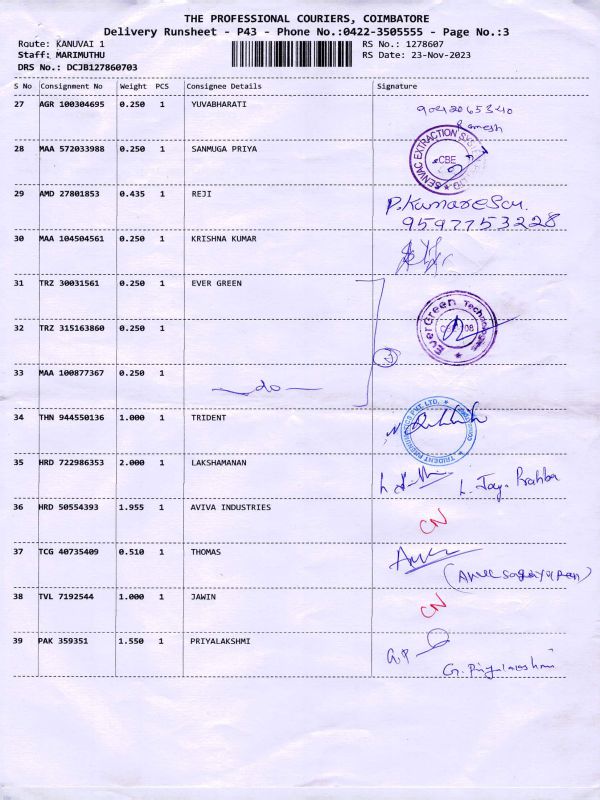 THE PROFESSIONAL COURIERS, COIMBATORE
Delivery Runsheet - P43 - Phone No.:0422-3505555 - Page No.:3
Route: KANUVAI 1 RS No.: 1278607
Staff: MARIMUTHU RS Date: 23-Nov-2023
DRS No.: DCJB127860703
S No Consignment No Weight PCS Consignee Details Signature
27 AGR 100304695 0.250 1 YUVABHARATI 9042065340
Ramesh
28 MAA 572033988 0.250 1 SANMUGA PRIYA SENIVAC EXTRACTION CBE
29 AMD 27801853 0.435 1 REJI P.Kumaresan.
9597753228
30 MAA 104504561 0.250 1 KRISHNA KUMAR
31 TRZ 30031561 0.250 1 EVER GREEN EverGreen Technologies
32 TRZ 315163860 0.250 1
33 MAA 100877367 0.250 1 do 3
34 THN 944550136 1.000 1 TRIDENT TRIDENT PNEUMATICS PVT. LTD.
35 HRD 722986353 2.000 1 LAKSHAMANAN L. Jay. Prahba
36 HRD 50554393 1.955 1 AVIVA INDUSTRIES CN
37 TCG 40735409 0.510 1 THOMAS
38 TVL 7192544 1.000 1 JAWIN CN
39 PAK 359351 1.550 1 PRIYALAKSHMI G.P
G. Priyalakshmi